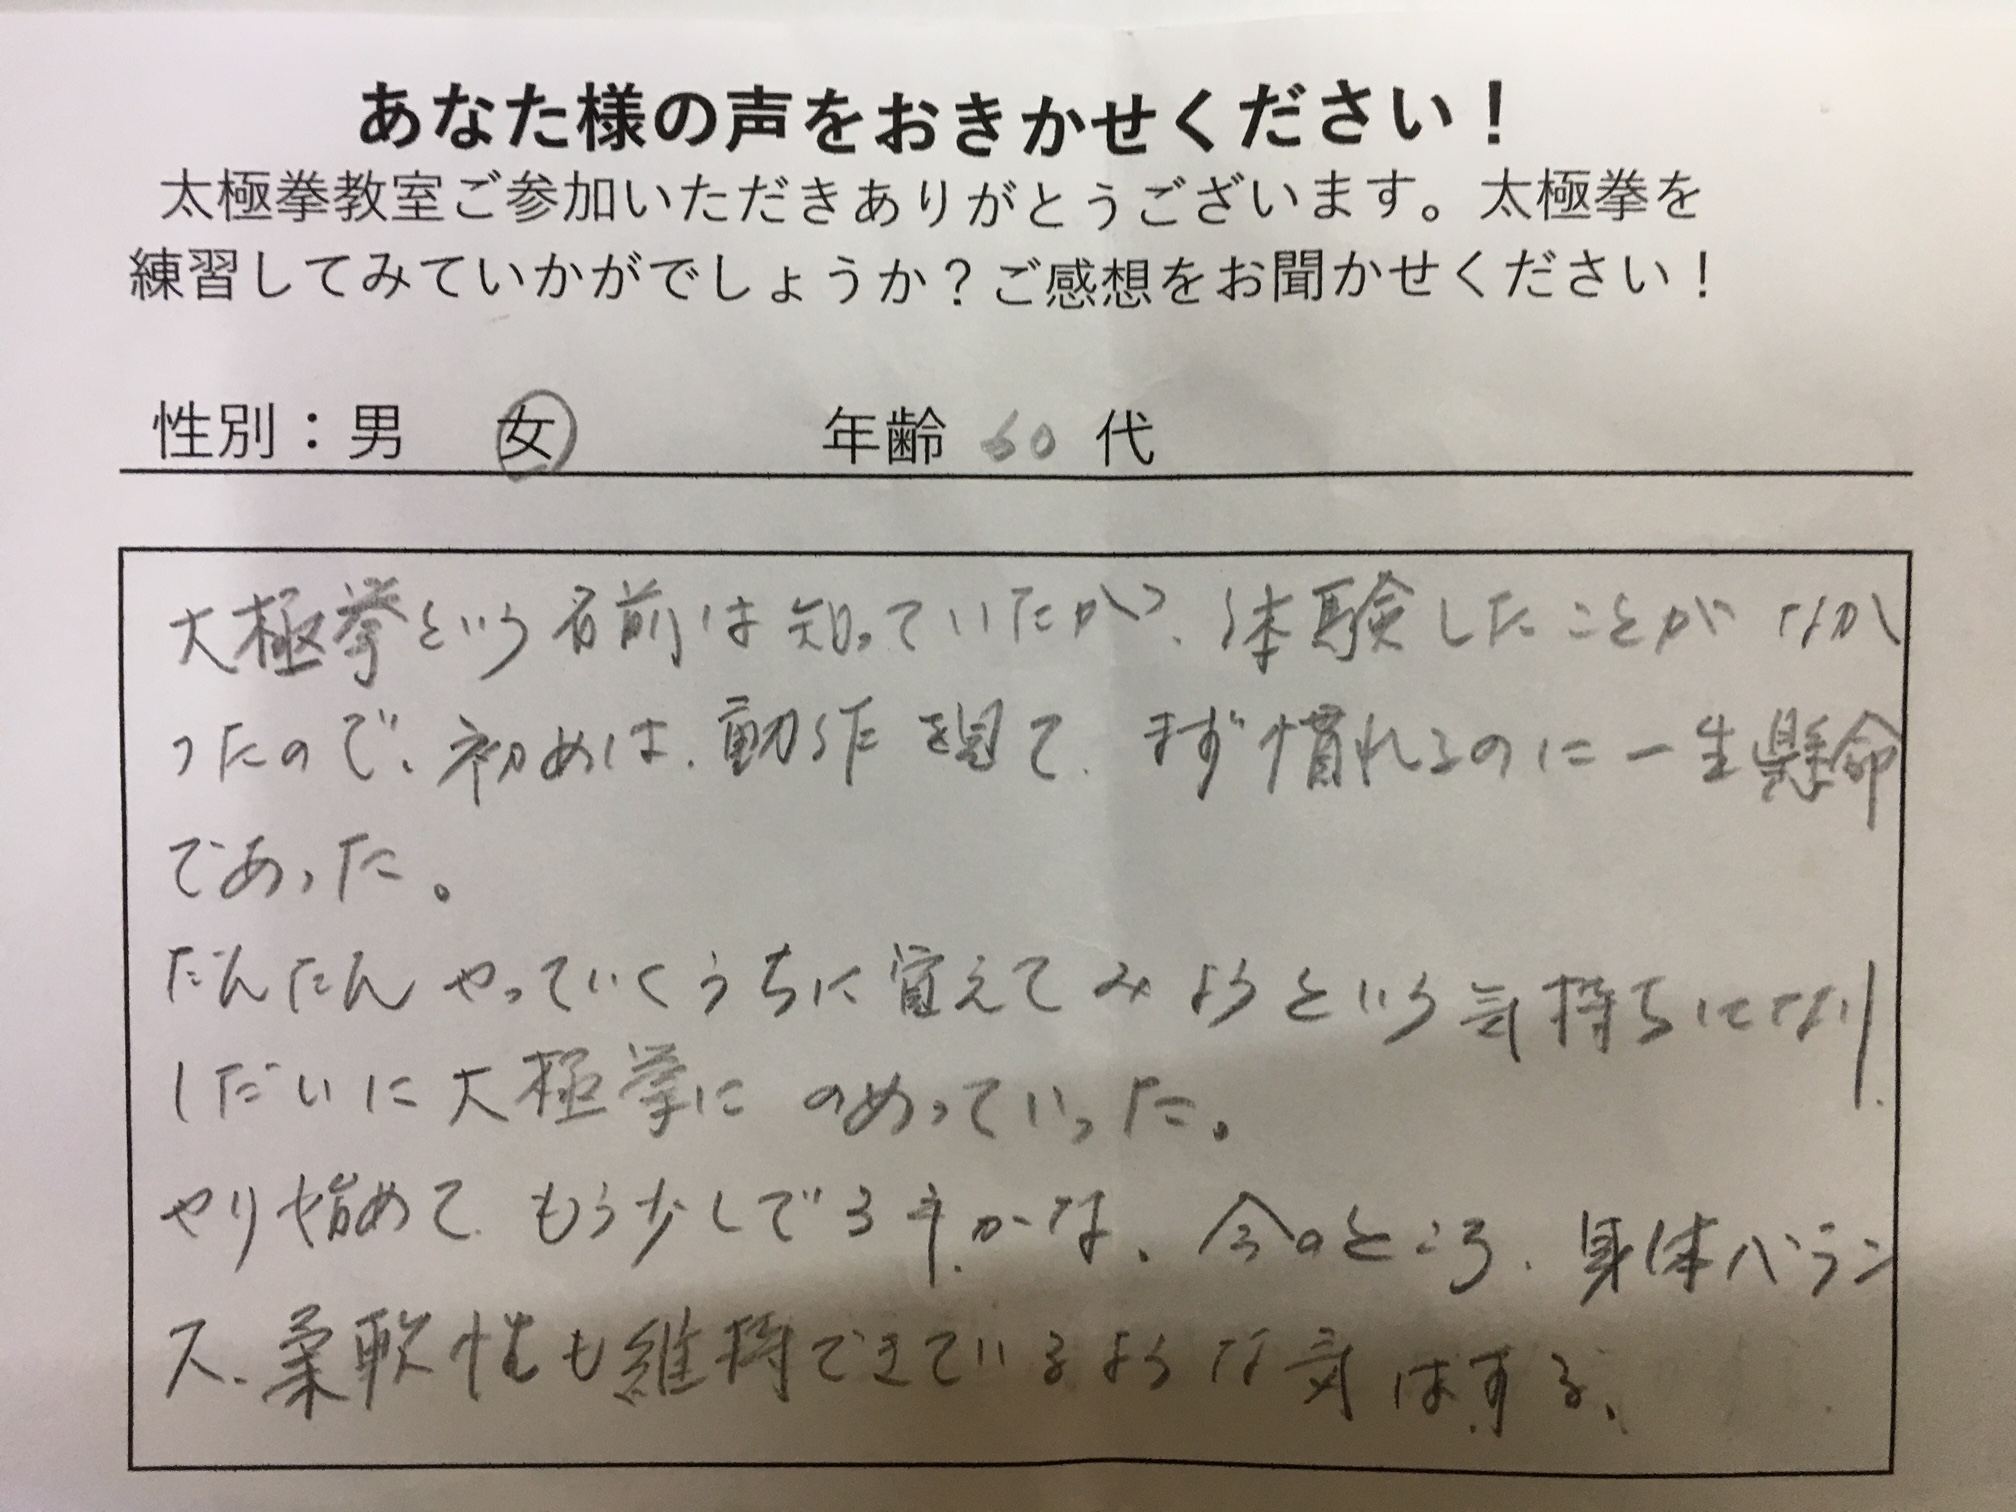 あなた様の声をおきかせください！
太極拳教室ご参加いただきありがとうございます。太極拳を
練習してみていかがでしょうか？ご感想をお聞かせください！
性別：男　女　年齢 60 代
大極挙という名前は知っていたが、体験したことがなか
ったので、初めは、動作を見て、まず慣れるのに一生懸命
であった。
だんだんやっていくうちに覚えてみようという気持ちになり、
しだいに大極挙にのめっていった。
やり始めて、もう少しで3年かな、今のところ、身体バラン
ス、柔軟性も維持できているような気はする、